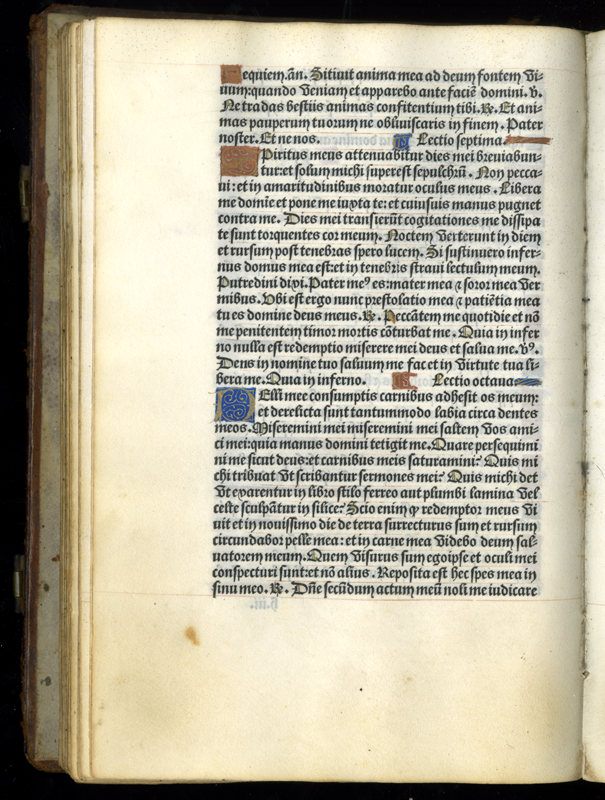 Requiem.añ. Sitiuit anima mea ad deum fontem vi-
uum:quando veniam et apparebo ante faciē domini.v̄.
Ne tradas bestiis animas confitentium tibi.℞. Et ani-
mas pauperum tuorum ne obliuiscaris in finem. Pater
noster. Et ne nos. Lectio septima.
SPiritus meus attenuabitur dies mei breuiabun-
tur:et solum michi superest sepulchrū. Non pecca-
ui:et in amaritudinibus moratur oculus meus. Libera
me domīe et pone me iuxta te:et cuiusuis manus pugnet
contra me. Dies mei transierūt cogitationes me dissipa
te sunt torquentes cor meum. Noctem verterunt in diem
et rursum post tenebras spero lucem. Si sustinuero infer-
nus domus mea est:et in tenebris straui lectulum meum.
Putredini dixi. Pater meꝰ es:mater mea ⁊ soror mea ver
mibus. Vbi est ergo nunc prestolatio mea ⁊ patiētia mea
tu es domine deus meus.℞. Peccātem me quotidie et nō
me penitentem timor mortis cōturbat me. Quia in infer
no nulla est redemptio miserere mei deus et salua me.v̄ꝰ.
Deus in nomine tuo saluum me fac et in virtute tua li-
bera me. Quia in inferno. Lectio octaua.
PElli mee consumptis carnibus adhesit os meum:
et derelicta sunt tantummodo labia circa dentes
meos. Miseremini mei miseremini mei saltem vos ami-
ci mei:quia manus domini tetigit me. Quare persequimi
ni me sicut deus:et carnibus meis saturamini? Quis mi
chi tribuat vt scribantur sermones mei? Quis michi det
vt exarentur in libro stilo ferreo aut plumbi lamina vel
celte sculpātur in silice? Scio enim ꝙ redemptor meus vi
uit et in nouissimo die de terra surrecturus sum et rursum
circundabor pelle mea:et in carne mea videbo deum sal-
uatorem meum. Quem visurus sum ego ipse et oculi mei
conspecturi sunt:et nō alius. Reposita est hec spes mea in
sinu meo.℞. Dn̄e secūdum actum meū noli me iudicare